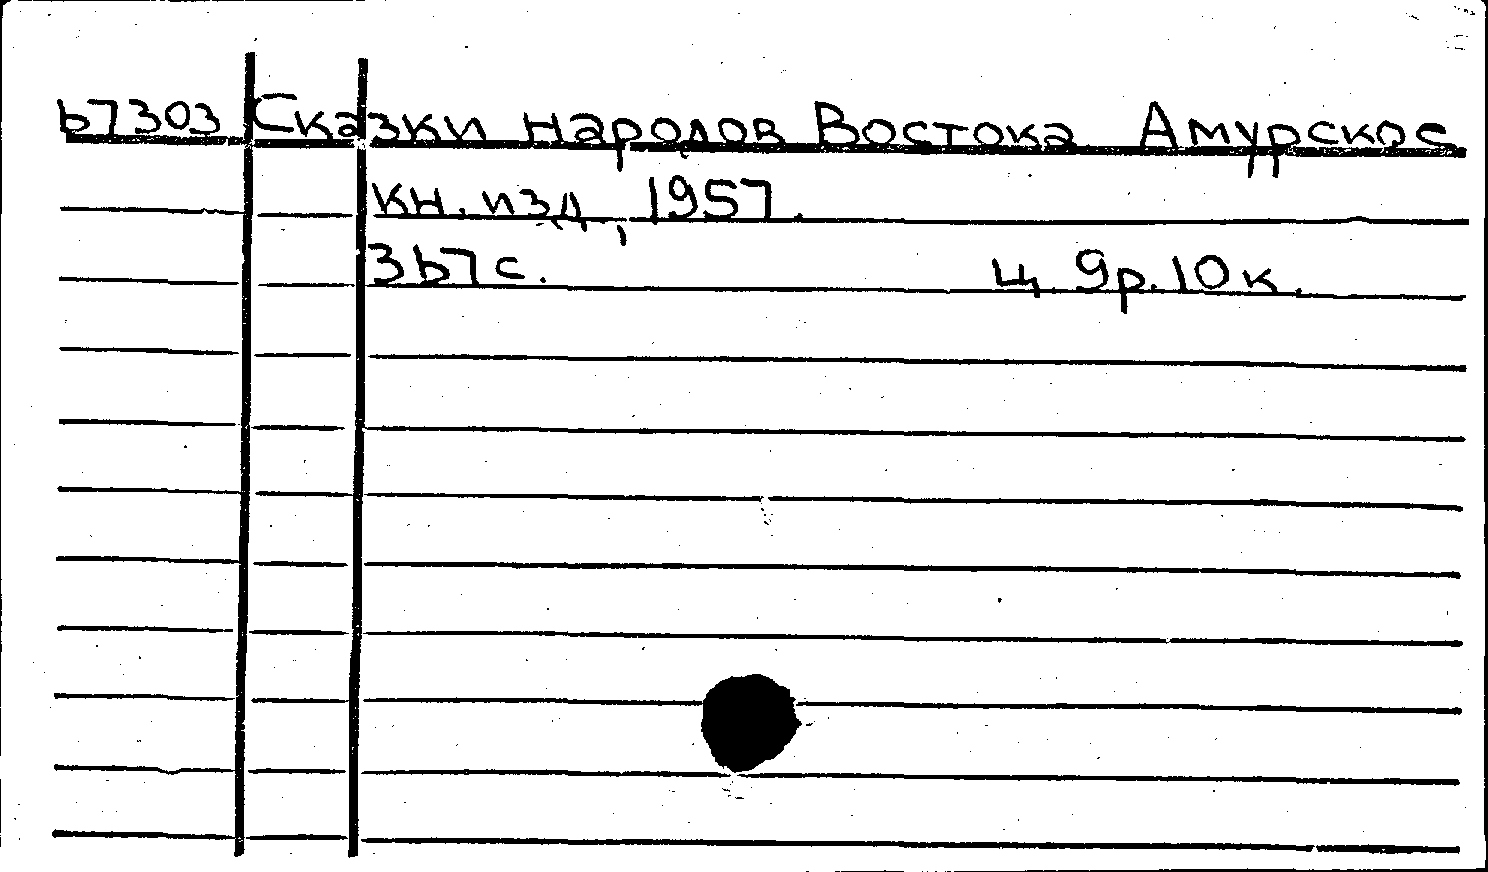 67303 Сказки народов Востока Амурское
кн. изд, 1957.
367 с. ц. 9р. 10 к.